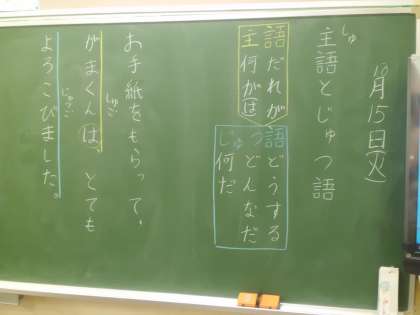 10月15日(火)
しゅ
主語とじゅつ語
主語
だれが
何が
は
じゅつ語
どうする
どんなだ
何だ
お手紙をもらって、
しゅご
がまくんは、とても
じゅつご
よろこびました。